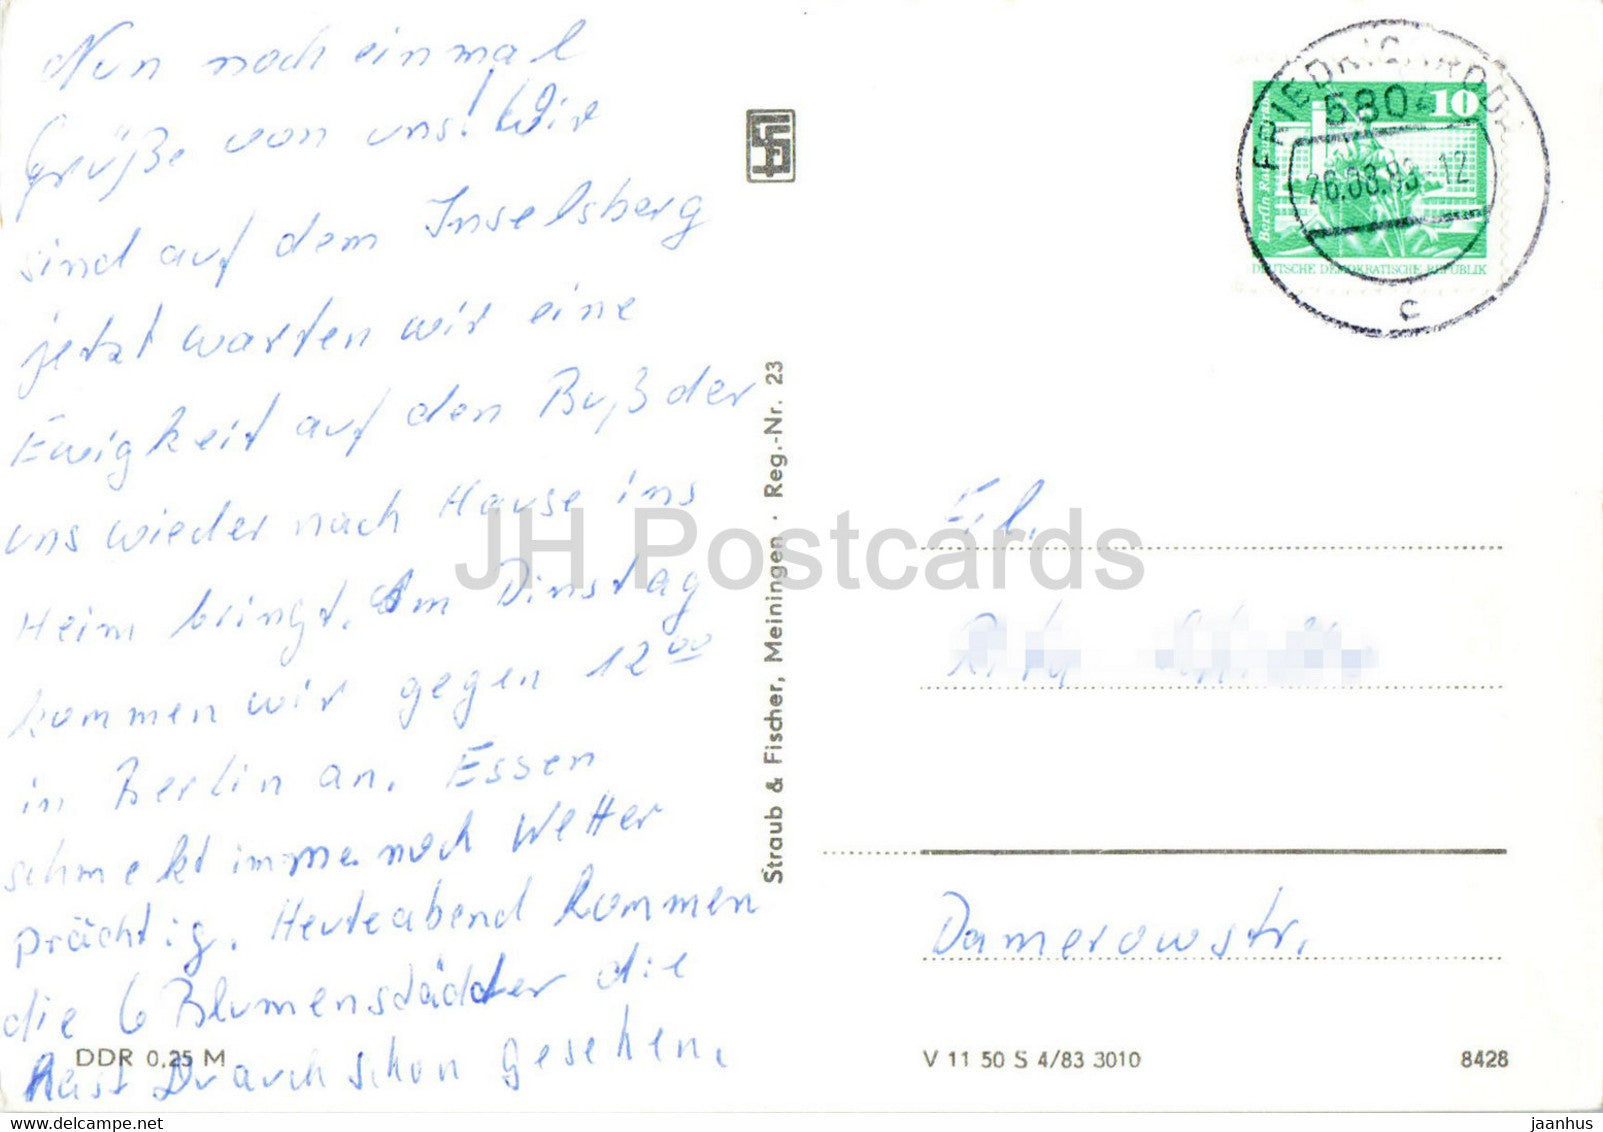 Nun noch einmal
Grüße von uns! Wir
sind auf dem Inselsberg
jetzt warten wir eine
Ewigkeit auf den Buß der
uns wieder nach Hause ins
Heim bringt. Am Dinstag
kommen wir gegen 12 00
in Berlin an. Essen
schmekt imme noch Wetter
prächtig. Heuteabend kommen
die 6 Blumenstädter die
hast Du auch schon gesehen.
DDR 0,25 M
Straub & Fischer, Meiningen · Reg.-Nr. 23
FRIEDRICHRODA
5804
26.08.83-12
c
10
DEUTSCHE DEMOKRATISCHE REPUBLIK
Frl.
Damerowstr.
V 11 50 S 4/83 3010
8428
JH Postcards
www.delcampe.net
jaanhus